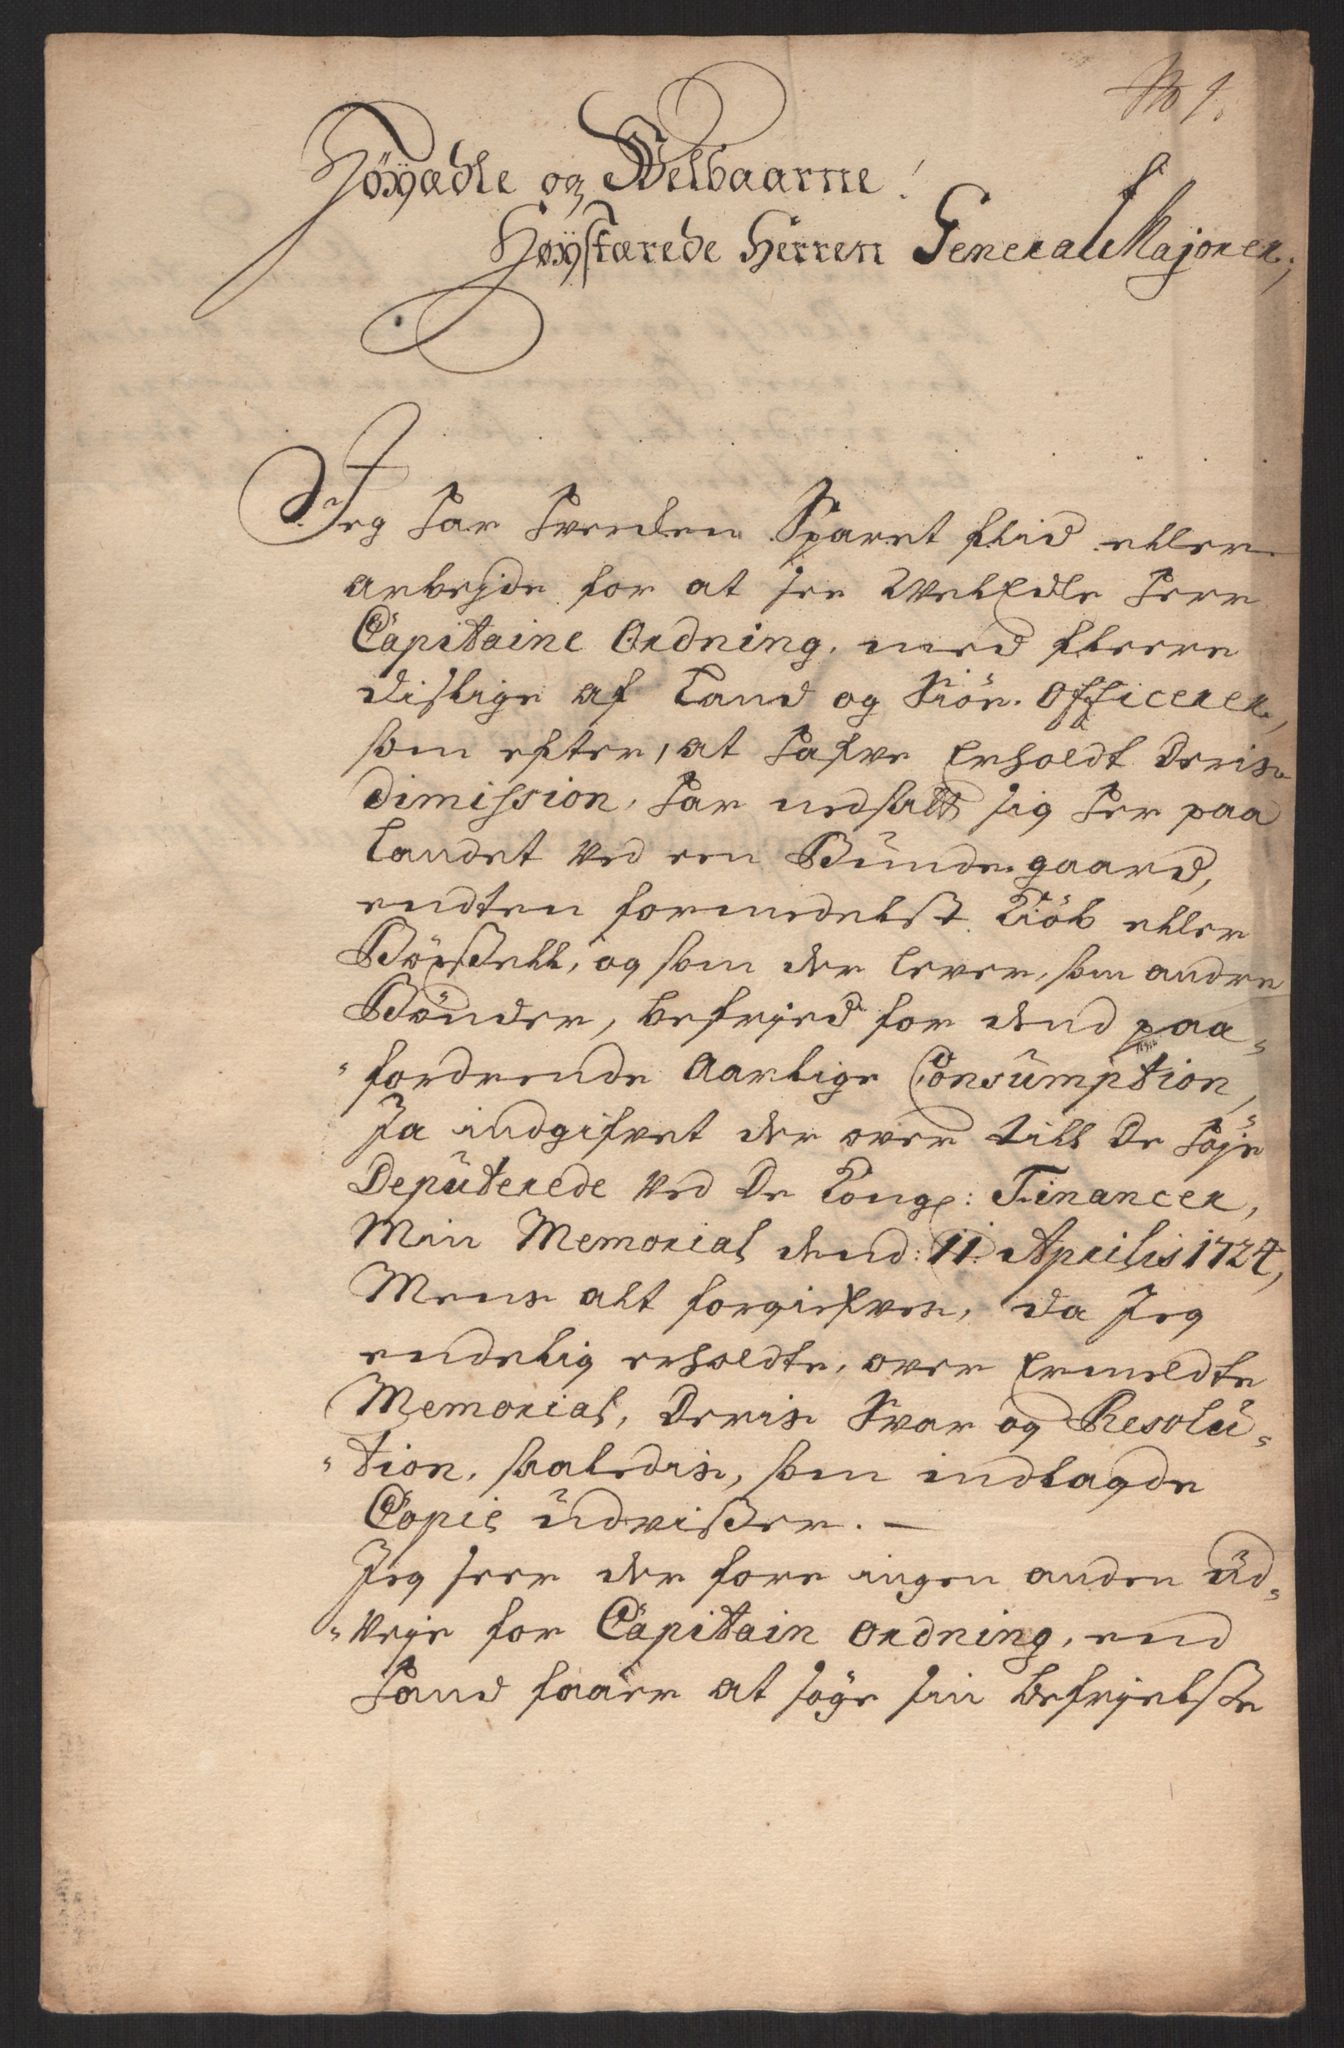 No 1.
Höyædle og Welbaarne!
Höystærede Herren General Majorer,
Jeg har hverchen Sparet fliid eller
arbejde for at see WelEdle Herr
Capitaine Ordning, med fleere
dislige af Land og Siöe. Officerer,
som efter, at hafve Erholdt deris
dimission, har nedsatt sig her paa
Landet ved een Bundegaard,
endten formedelst Kiöb eller
Böxsell, og som der lever, som andre
Bönder, befryed for dend paa-
fordrende Aarlige Consumption,
Ja indgifvet der over till De Höje
Deputerede ved De Kongl: Financer,
Min Memorial dend: 11. Aprilis 1724,
Mens alt forgiefves, da Jeg
endelig erholdte, over Ermeldte
Memorial, Deris Svar og Resolu-
tion, saaledis, som indlagde
Copie udvißer. —
Jeg seer der fore ingen anden ud-
veje for Capitain Ordning, end
Hand faaer at söge sin befryelße